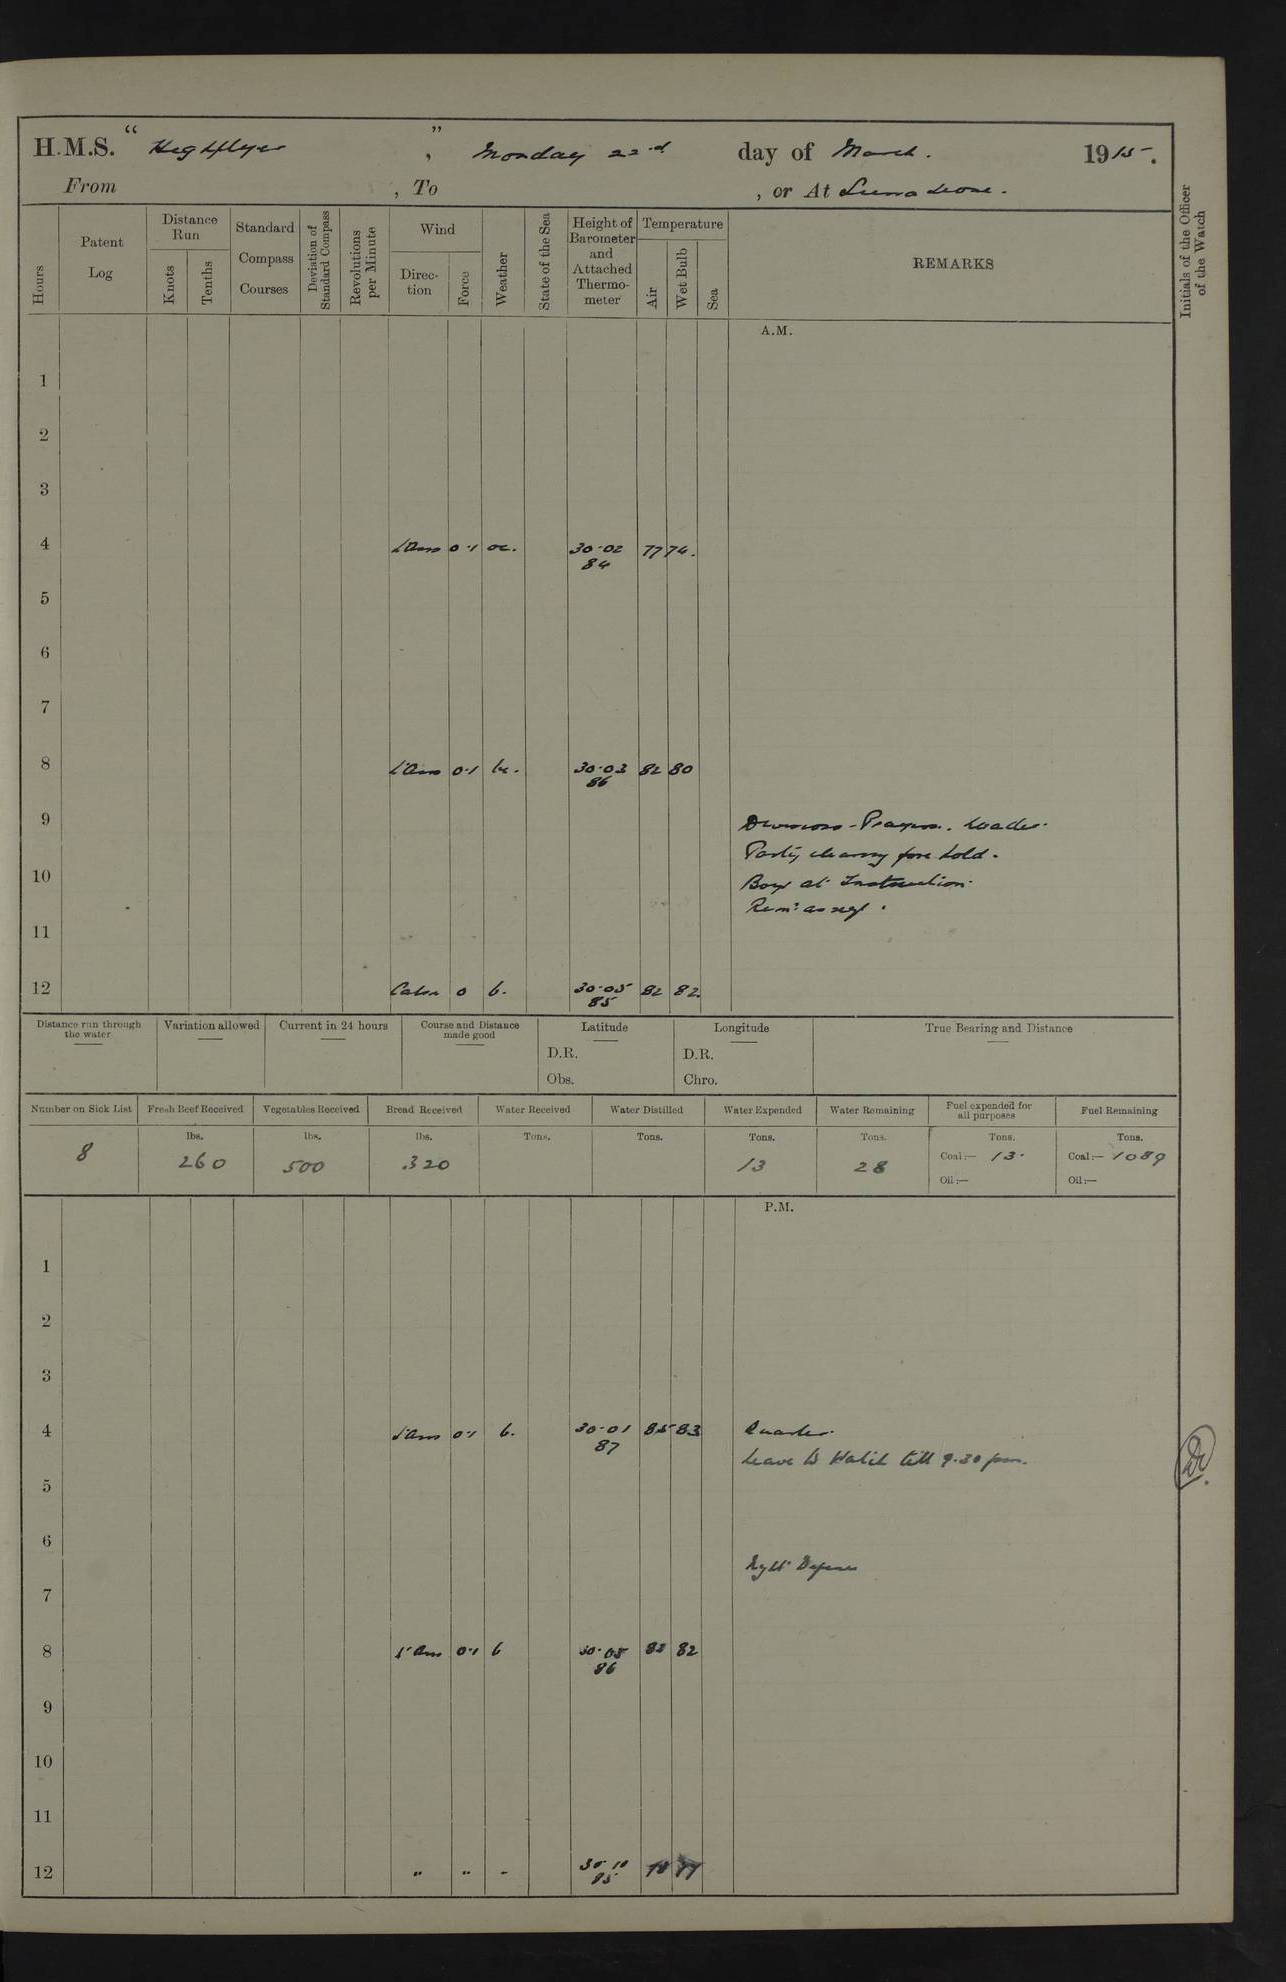 H.M.S. " Highflyer ", Monday 22nd day of March. 1915.
From , To , or At Sierra Leone.
Hours
Patent Log
Distance Run
Knots
Tenths
Standard Compass Courses
Deviation of Standard Compass
Revolutions per Minute
Wind
Direction
Force
Weather
State of the Sea
Height of Barometer and Attached Thermometer
Temperature
Air
Wet Bulb
Sea
REMARKS
Initials of the Officer of the Watch
A.M.
1
2
3
4 L'Airs 0·1 oc. 30·02 77 74.
84
5
6
7
8 L'Airs 0·1 bc. 30·03 82 80
86
9 Divisions - Prayers.
Party clearing fore hold.
10 Boys at Instruction.
Rem: as req.
11
12 Calm 0 b. 30·05 82 82.
85
Distance run through the water
Variation allowed
Current in 24 hours
Course and Distance made good
Latitude
D.R.
Obs.
Longitude
D.R.
Chro.
True Bearing and Distance
Number on Sick List Fresh Beef Received Vegetables Received Bread Received Water Received Water Distilled Water Expended Water Remaining Fuel expended for all purposes Fuel Remaining
lbs. lbs. lbs. Tons. Tons. Tons. Tons. Tons. Tons.
8 260 500 320 13 28 Coal:— 13. Coal:— 1089
Oil:— Oil:—
P.M.
1
2
3
4 L'Airs 0·1 b. 30·01 85 83 Quarters.
87
Leave to Watch till 9.30 pm.
5
6
Night Defence
7
8 L'Airs 0·1 b 30·05 82 82
86
9
10
11
12 " " - 30·10
85